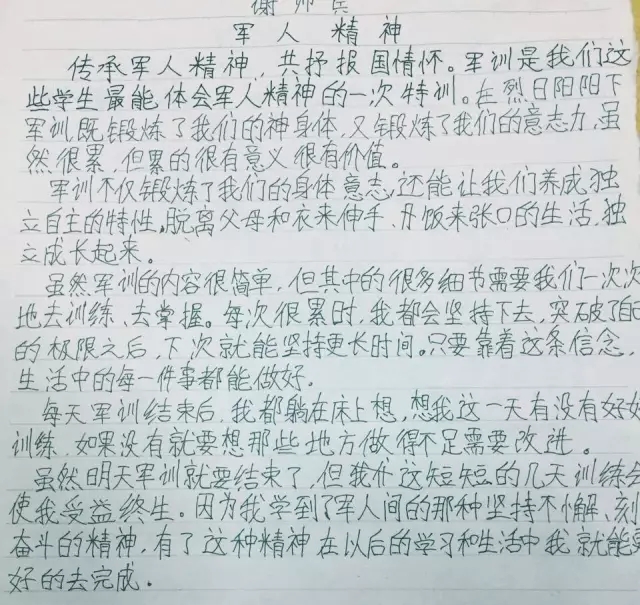 谢帅兵
军人精神
传承军人精神，共抒报国情怀。军训是我们这
些学生最能体会军人精神的一次特训。在烈日阳阳下
军训，既锻炼了我们的神身体，又锻炼了我们的意志力，虽
然很累，但累的很有意义很有价值。
军训不仅锻炼了我们的身体意志，还能让我们养成独
立自主的特性，脱离父母和衣来伸手、丹饭来张口的生活，独
立成长起来。
虽然军训的内容很简单，但其中的很多细节需要我们一次次
地去训练、去掌握。每次很累时，我都会坚持下去，突破了自己
的极限之后，下次就能坚持更长时间。只要靠着这条信念，
生活中的每一件事都能做好。
每天军训结束后，我都躺在床上想，想我这一天有没有好好
训练，如果没有就要想那些地方做得不足需要改进。
虽然明天军训就要结束了，但我们这短短的几天训练会
使我受益终生。因为我学到了军人间的那种坚持不懈、刻
奋斗的精神，有了这种精神在以后的学习和生活中我就能更
好的去完成。